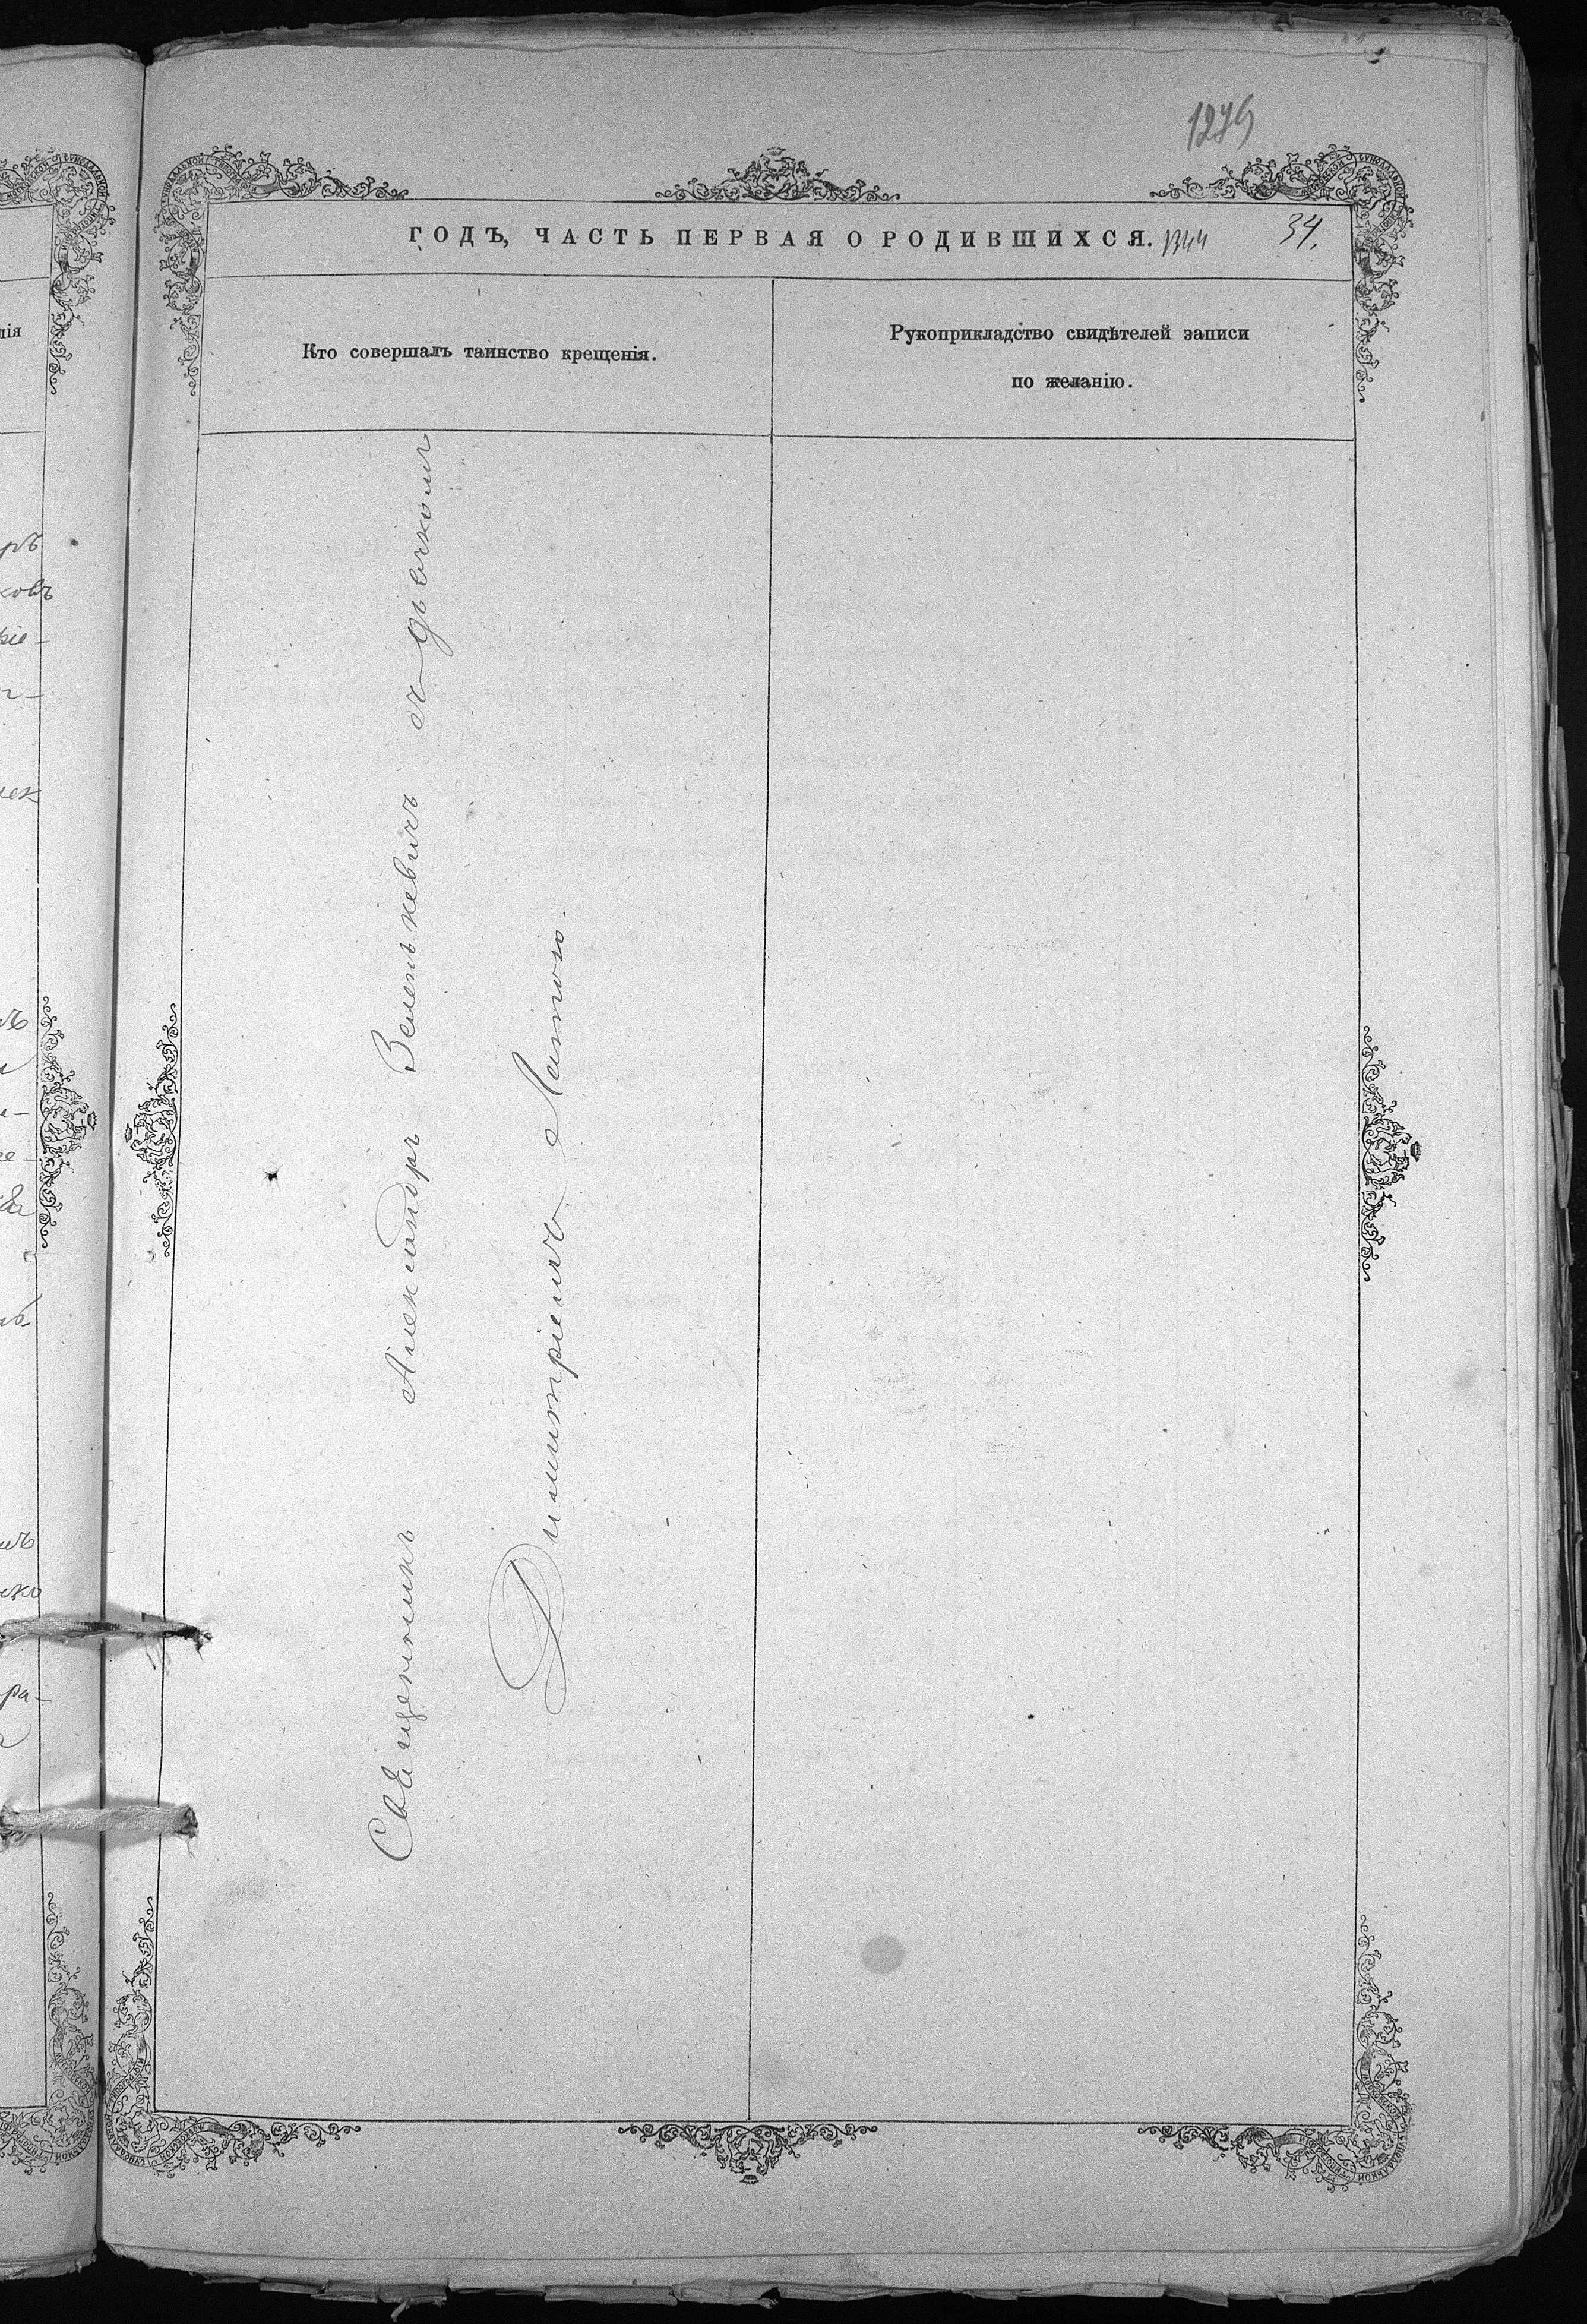 1279
ГОДЪ, ЧАСТЬ ПЕРВАЯ О РОДИВШИХСЯ. 1344 34.
Кто совершалъ таинство крещенія.
Рукоприкладство свидѣтелей записи
по желанію.
Священникъ Александръ Зеленкевичъ съ дьячкомъ
Димитріемъ Лаппою.